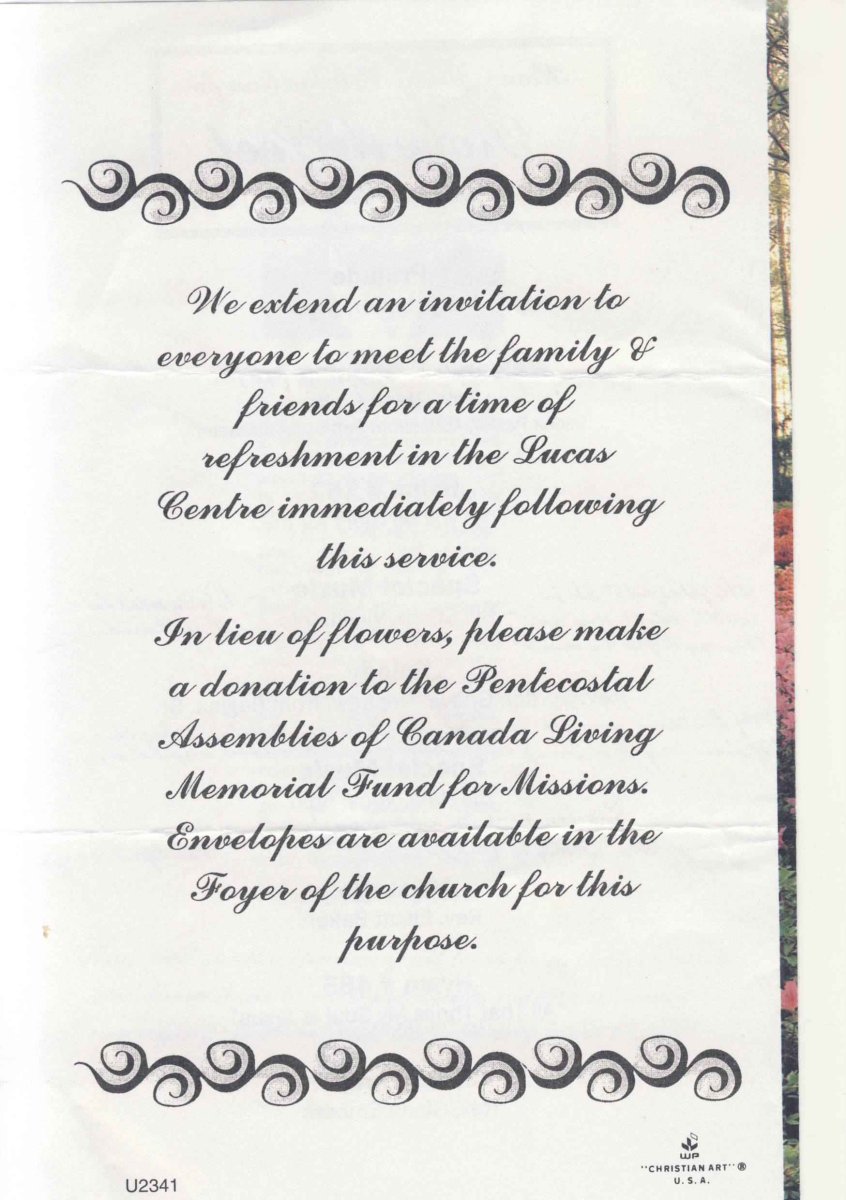 We extend an invitation to
everyone to meet the family &
friends for a time of
refreshment in the Lucas
Centre immediately following
this service.
In lieu of flowers, please make
a donation to the Pentecostal
Assemblies of Canada Living
Memorial Fund for Missions.
Envelopes are available in the
Foyer of the church for this
purpose.
WP
"CHRISTIAN ART"®
U.S.A.
U2341